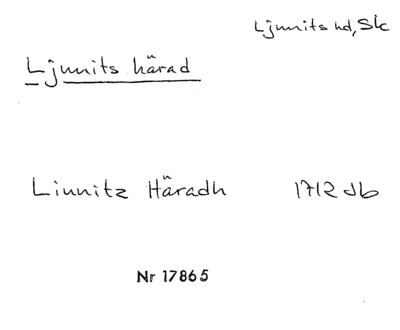 Ljunits hd, Sk
Ljunits härad
Liunitz Häradh 1712 Jb
Nr 17865